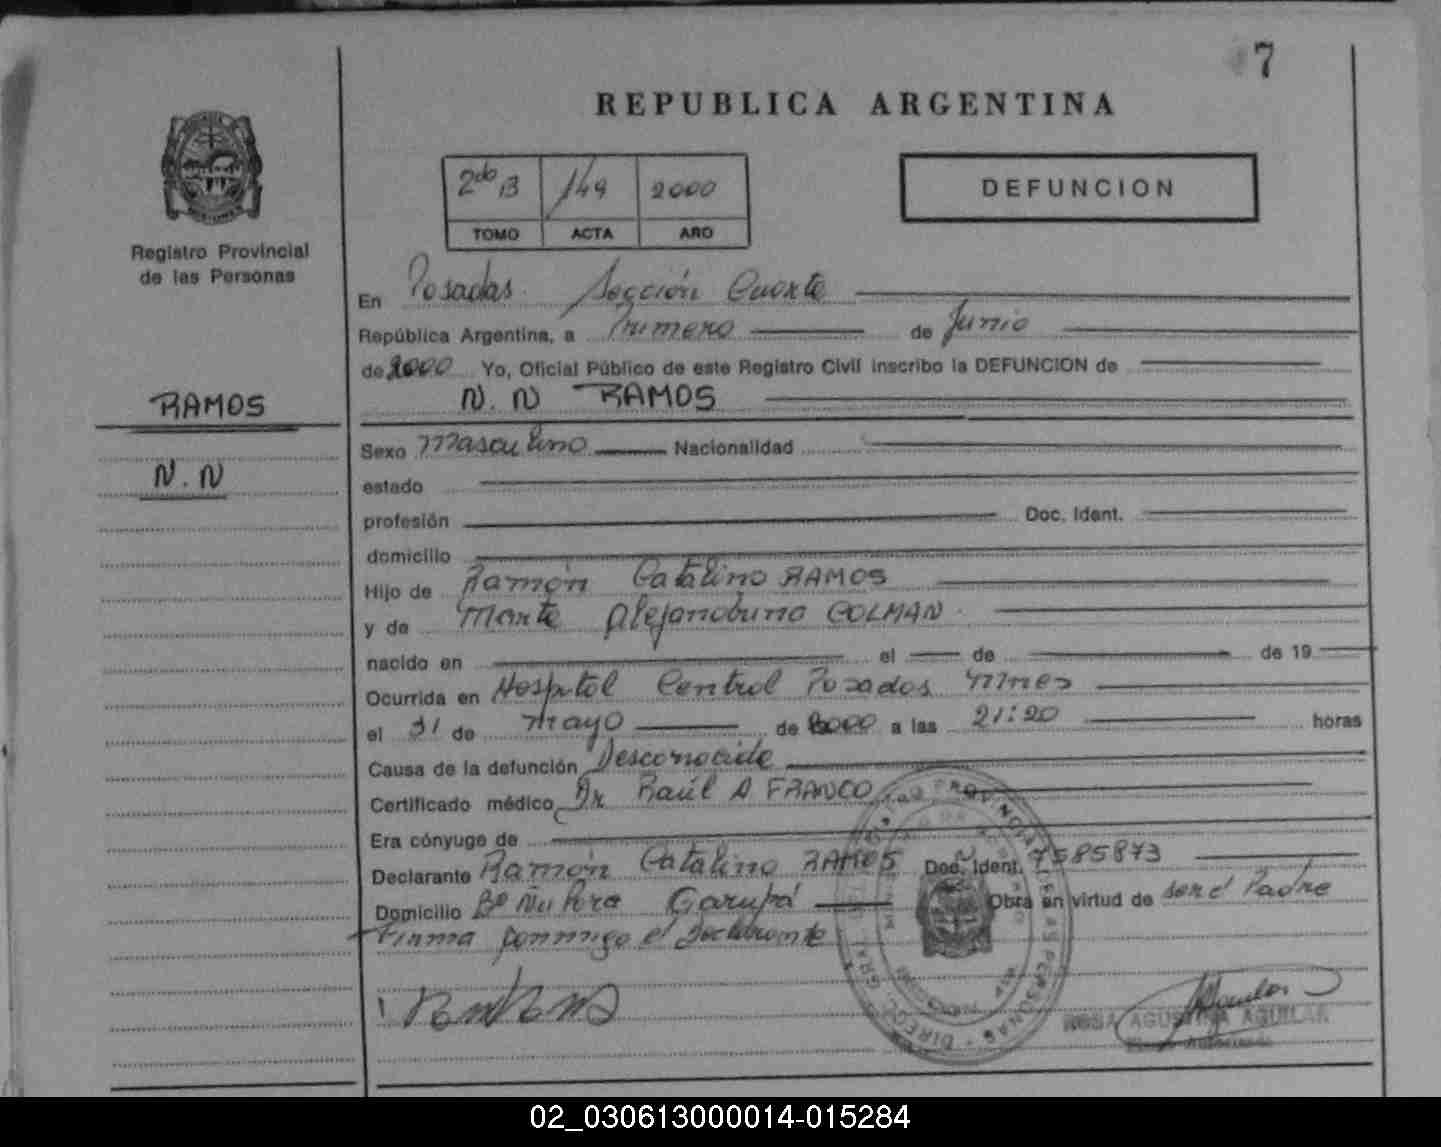 7
REPUBLICA ARGENTINA
2do B 149 2000
TOMO ACTA AÑO
DEFUNCION
Registro Provincial
de las Personas
RAMOS
N.N
En Posadas Sección Cuarta
República Argentina, a Primero de Junio
de 2000 Yo, Oficial Público de este Registro Civil inscribo la DEFUNCION de
N.N RAMOS
Sexo Masculino Nacionalidad
estado
profesión Doc. Ident.
domicilio
Hijo de Ramón Catalino RAMOS
y de Marta Alejandrina COLMAN
nacido en el de de 19
Ocurrida en Hospital Central Posados Mnes
el 31 de mayo de 2000 a las 21:20 horas
Causa de la defunción Desconocida
Certificado médico Dr Raúl A FRANCO
Era cónyuge de
Declarante Ramón Catalino RAMOS Doc. Ident. 7585873
Domicilio Bº Ñu Porá Garupá Obra en virtud de ser el Padre
Firma conmigo el declarante
ROSA AGUSTINA AGUILAR
02_030613000014-015284